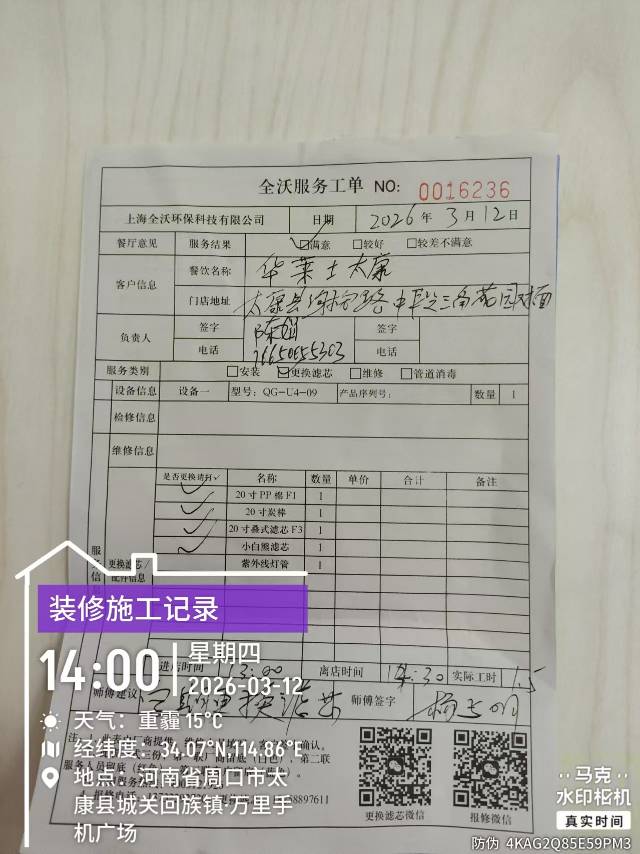 全沃服务工单 NO: 0016236
上海全沃环保科技有限公司 日期 2026年 3月 12日
餐厅意见 服务结果 满意 较好 较差不满意
客户信息 餐饮名称 华莱士太康
门店地址 太康县 路中段三角花园对面
负责人 签字 签字
电话 电话
服务类别 安装 更换滤芯 维修 管道消毒
设备信息 设备一 型号: QG-U4-09 产品序列号: 数量 1
检修信息
维修信息
服务信息 更换滤芯/配件信息
是否更换请打√ 名称 数量 单价 合计 备注
20寸PP棉F1 1
20寸炭棒 1
20寸叠式滤芯F3 1
小白熊滤芯 1
紫外线灯管 1
进店时间 13:00 离店时间 14:30 实际工时 1.5
师傅建议 更换滤芯 师傅签字
更换滤芯微信 报修微信
装修施工记录
14:00 星期四
2026-03-12
天气: 重霾 15℃
经纬度: 34.07°N,114.86°E
地点: 河南省周口市太
康县城关回族镇·万里手
机广场
马克
水印相机
真实时间
防伪 4KAG2Q85E59PM3